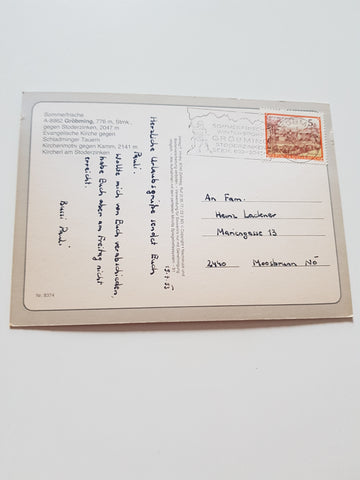 Sommerfrische
A-8962 Gröbming, 776 m, Stmk.
gegen Stoderzinken, 2047 m
Evangelische Kirche gegen
Schladminger Tauern
Kirchenmotiv gegen Kamm, 2141 m
Kircherl am Stoderzinken
Herzliche Urlaubsgrüße sendet Euch
Pauli!
Wollte mich von Euch verabschieden,
habe Euch aber am Freitag nicht
erreicht!
Bussi Pauli
Nr. 8374
SOMMERFRISCHE
WINTERSPORT
GRÖBMING
STODERZINKEN
S 5
An Fam.
Heinz Lackner
Mariengasse 13
2440 Moosbrunn NÖ